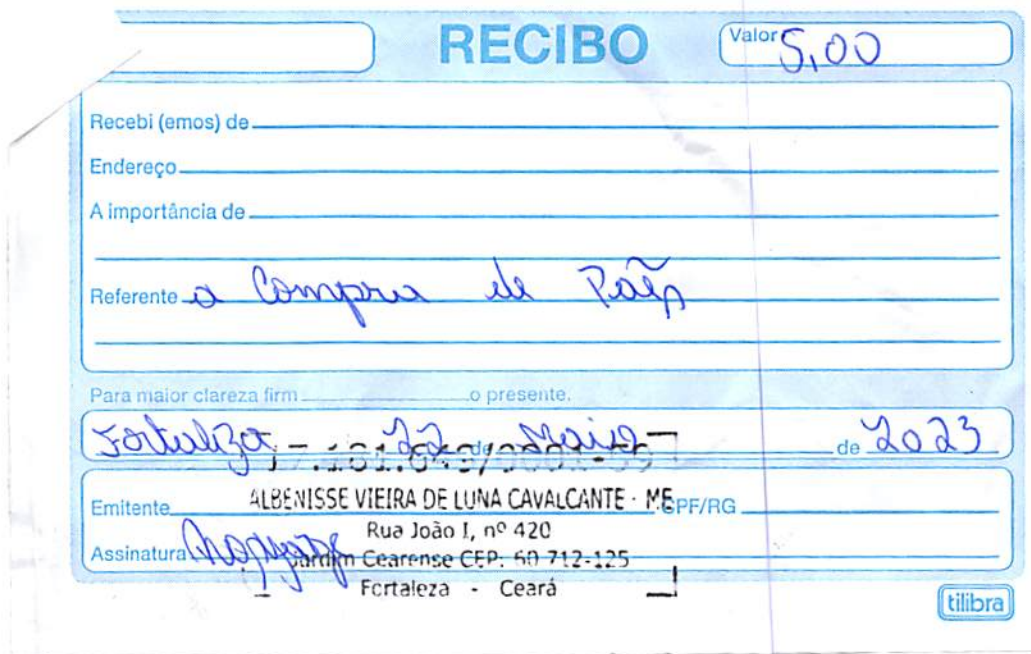 RECIBO
Valor 5,00
Recebi (emos) de
Endereço
A importância de
Referente a Compra de Pães
Para maior clareza firm o presente.
Fortaleza 22 de Maio de 2023
Emitente CPF/RG
ALBENISSE VIEIRA DE LUNA CAVALCANTE - ME
Rua João I, nº 420
Assinatura
Jardim Cearense CEP: 60 712-125
Fortaleza - Ceará
tilibra